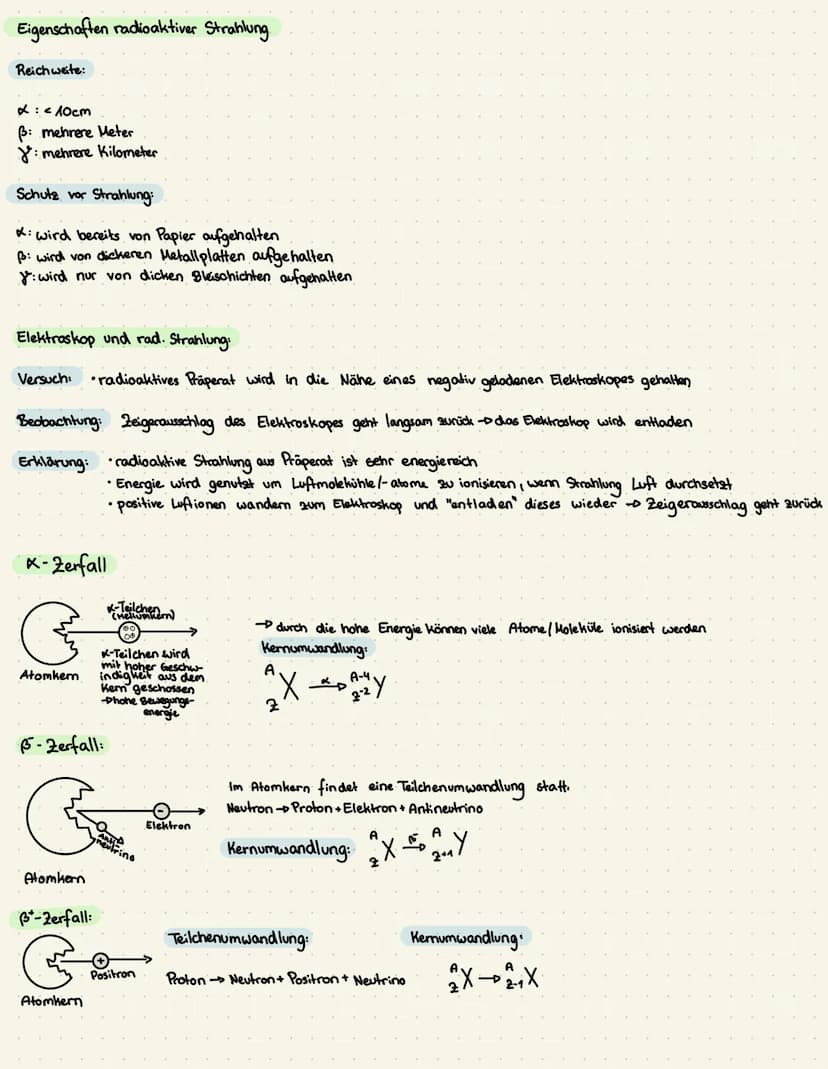 Eigenschaften radioaktiver Strahlung
Reichweite:
α : < 10cm
β: mehrere Meter
γ: mehrere Kilometer
Schutz vor Strahlung:
α: wird bereits von Papier aufgehalten
β: wird von dickeren Metallplatten aufgehalten
γ: wird nur von dicken Bleischichten aufgehalten
Elektroskop und rad. Strahlung:
Versuch: • radioaktives Präperat wird in die Nähe eines negativ geladenen Elektroskopes gehalten
Beobachtung: Zeigerausschlag des Elektroskopes geht langsam zurück → das Elektroskop wird entladen
Erklärung: • radioaktive Strahlung aus Präperat ist sehr energiereich
• Energie wird genutzt um Luftmoleküle/-atome zu ionisieren, wenn Strahlung Luft durchsetzt
• positive Luftionen wandern zum Elektroskop und "entladen" dieses wieder → Zeigerausschlag geht zurück
α-Zerfall
α-Teilchen
(Heliumkern)
Atomkern
α-Teilchen wird
mit hoher Geschw-
indigkeit aus dem
Kern geschossen
→ hohe Bewegungs-
energie
→ durch die hohe Energie können viele Atome/Moleküle ionisiert werden
Kernumwandlung:
A Z X α→ A-4 Z-2 Y
β⁻-Zerfall:
Elektron
Anti-
neutrino
Atomkern
Im Atomkern findet eine Teilchenumwandlung statt.
Neutron → Proton + Elektron + Antineutrino
Kernumwandlung: A Z X β⁻→ A Z+1 Y
β⁺-Zerfall:
+
Positron
Atomkern
Teilchenumwandlung:
Proton → Neutron + Positron + Neutrino
Kernumwandlung:
A Z X → A Z-1 X